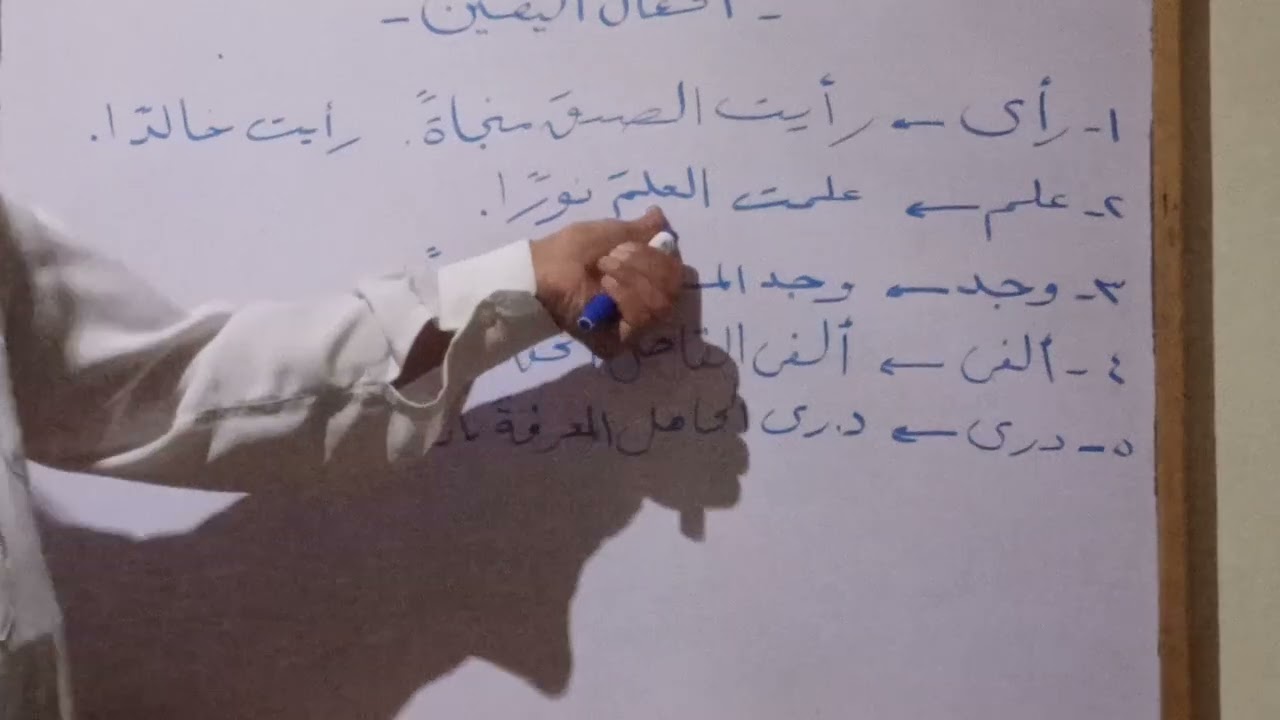 - أفعال اليقين -
١- رأى ← رأيت الصدقَ منجاةً. رأيت خالدًا.
٢- علم ← علمت العلمَ نورًا.
٣- وجد ← وجد
٤- ألفى ← ألفى
٥- درى ← درى الجاهل المعرفة